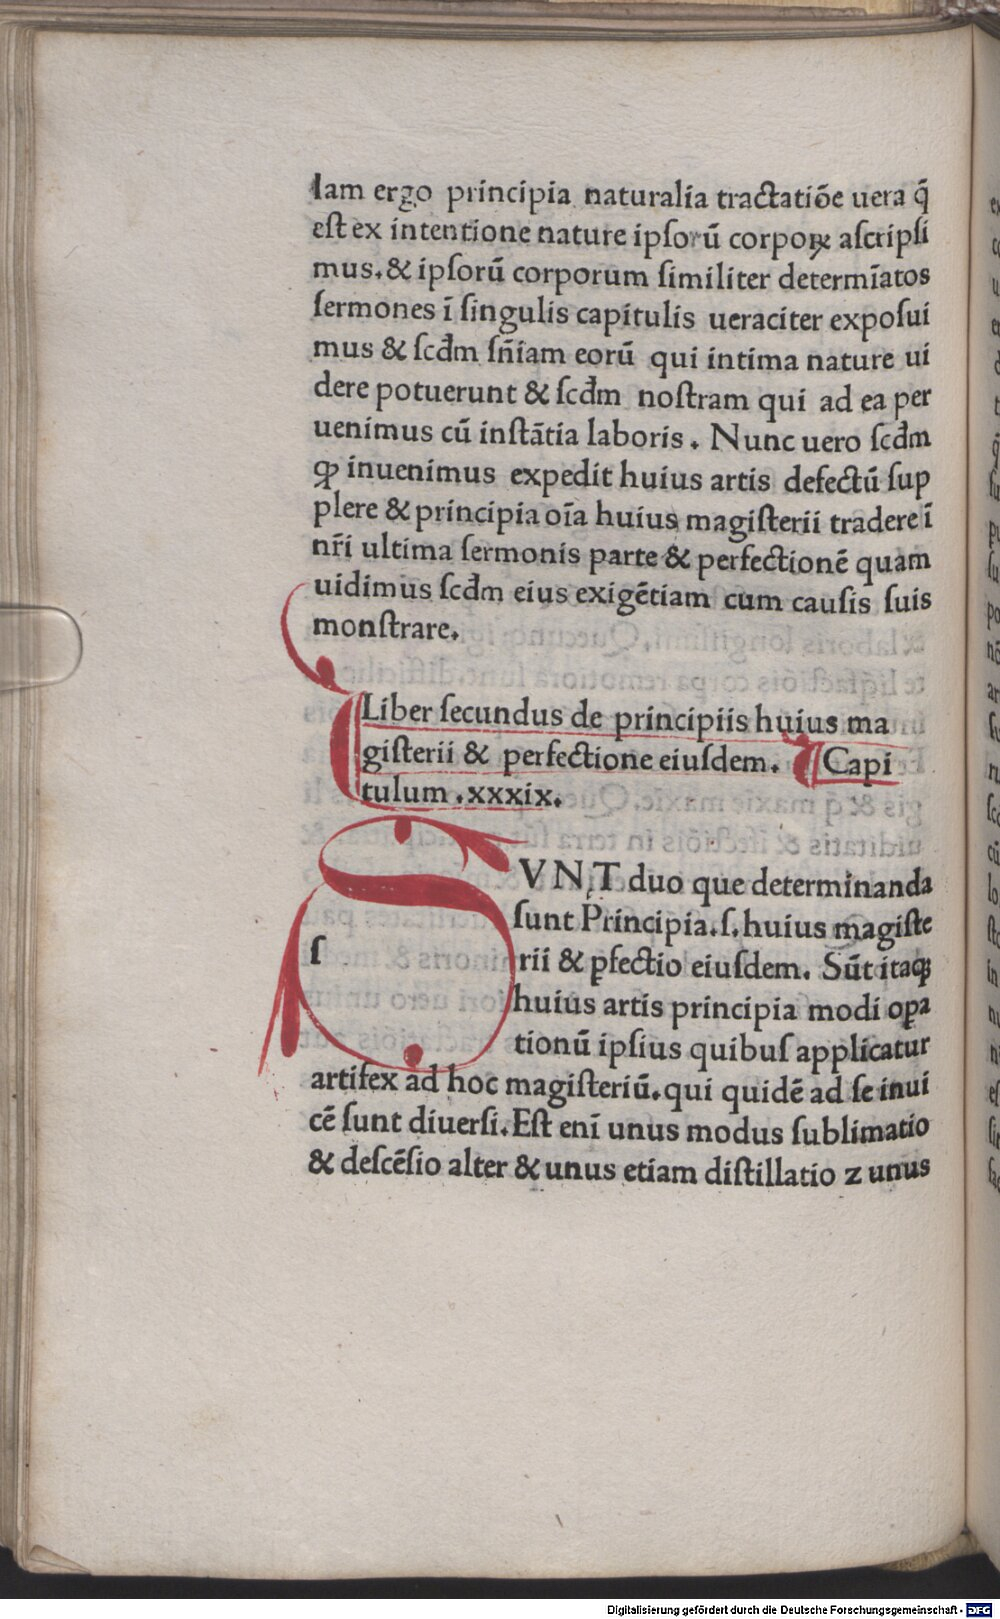 Iam ergo principia naturalia tractatiōe uera q̄
eſt ex intentione nature ipſorū corpoꝝ aſcripſi
mus.& ipſorū corporum ſimiliter determīatos
ſermones ī ſingulis capitulis ueraciter expoſui
mus & ſcd̄m ſn̄iam eorū qui intima nature ui
dere potuerunt & ſcd̄m noſtram qui ad ea per
uenimus cū inſtātia laboris. Nunc uero ſcd̄m
ꝙ inuenimus expedit huius artis defectū ſup
plere & principia oīa huius magiſterii tradere ī
nr̄i ultima ſermonis parte & perfectionē quam
uidimus ſcd̄m eius exigētiam cum cauſis ſuis
monſtrare.
Liber ſecundus de principiis huius ma
giſterii & perfectione eiuſdem. Capi
tulum .xxxix.
S
ſ
VNT duo que determinanda
ſunt Principia.ſ.huius magiſte
rii & ꝑfectio eiuſdem. Sūt itaqꝫ
huius artis principia modi oꝑa
tionū ipſius quibuſ applicatur
artifex ad hoc magiſteriū.qui quidē ad ſe inui
cē ſunt diuerſi.Eſt enī unus modus ſublimatio
& deſcēſio alter & unus etiam diſtillatio ꝛ unus
Digitalisierung gefördert durch die Deutsche Forschungsgemeinschaft - DFG